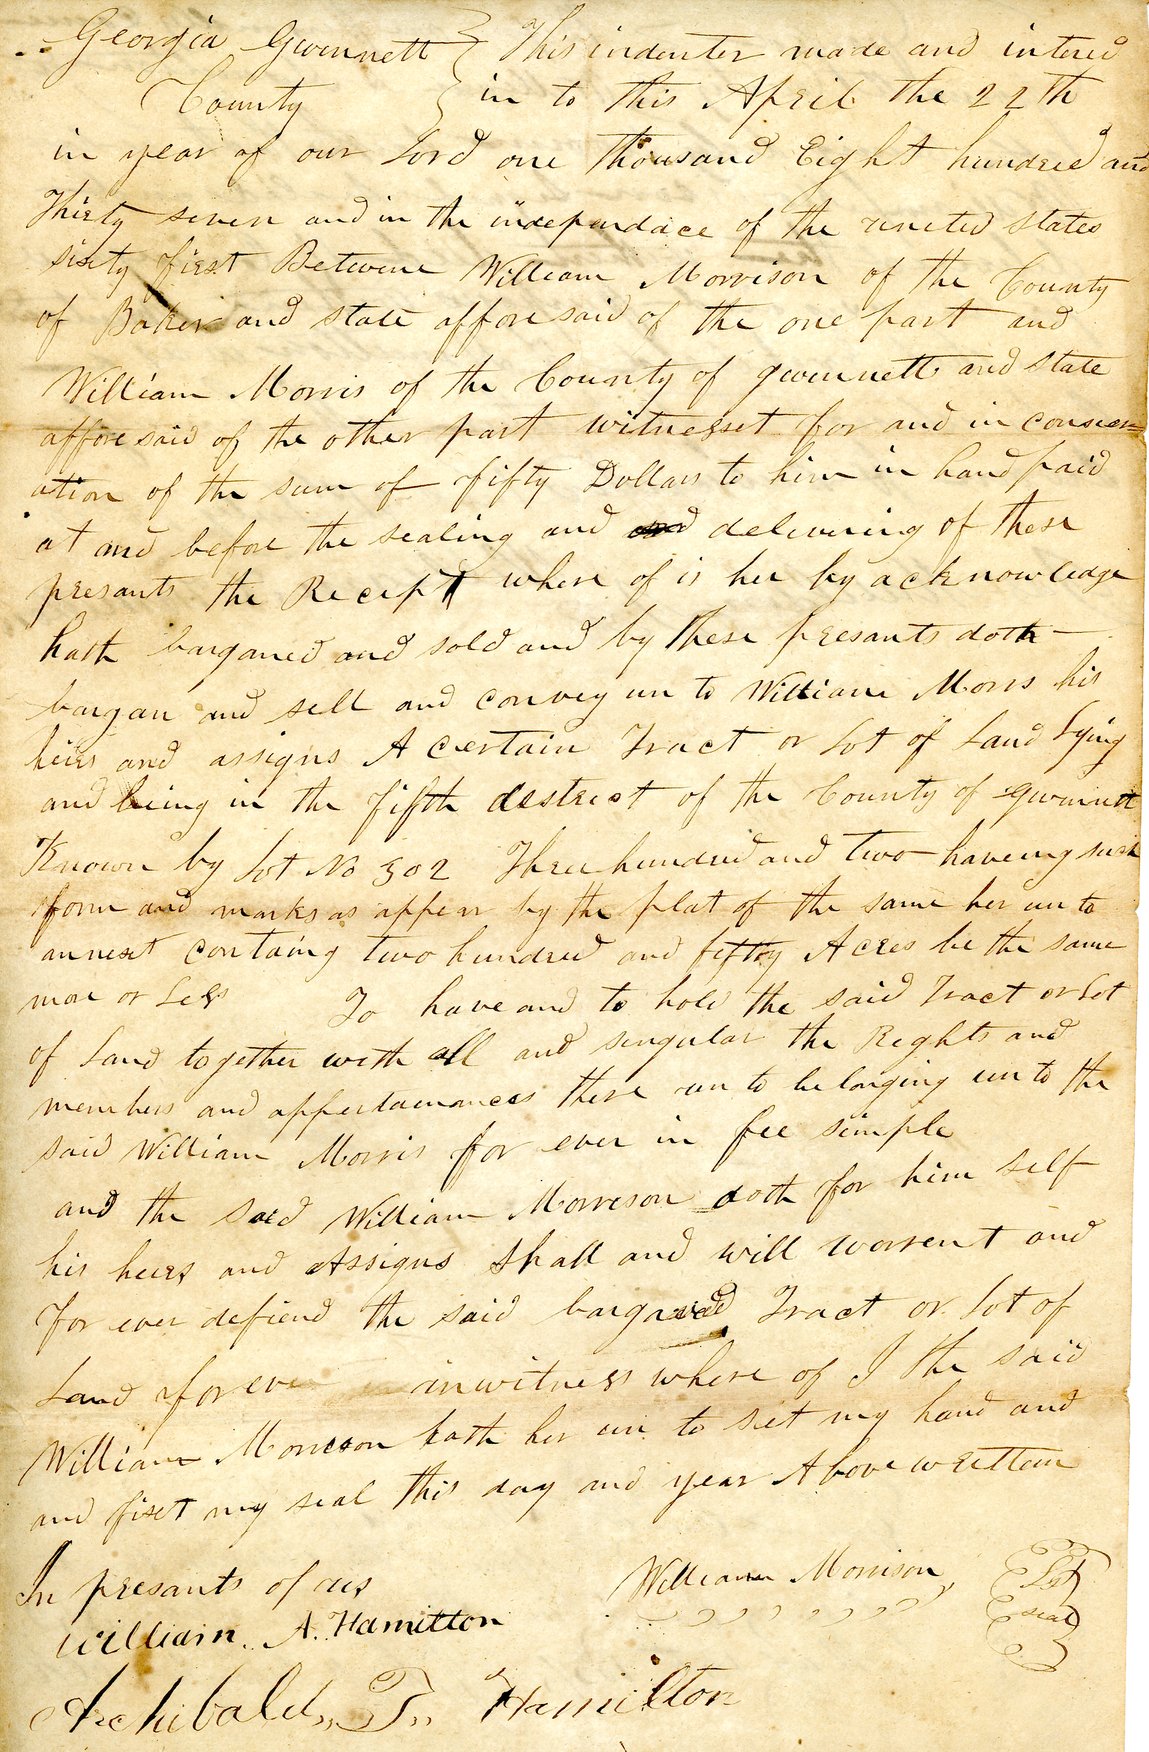 Georgia Gwinnett } This indenter made and intered
County } in to this April the 22th
in year of our Lord one thousand Eight hundred and
Thirty seven and in the independace of the united states
sixty first Betwene William Morrison of the County
of Baker and state afforesaid of the one part and
William Morris of the County of gwinnett and state
afforesaid of the other part witnesset for and in consider=
ation of the sum of fifty Dollars to him in hand paid
at and before the sealing and and delivering of these
presants the Recept where of is her by acknowledge
hath barganed and sold and by these presants doth
bargan and sell and convey un to William Morris his
heirs and assigns A certain Tract or Lot of Land Lying
and being in the fifth destrect of the County of gwinnett
Known by Lot No 302 Three hundred and two haveing such
form and marks as appear by the plat of the same her un to
annext containg two hundred and fiftty Acres be the same
more or Less To have and to hold the said Tract or Lot
of Land together with all and singular the Rights and
members and appertainances there un to belonging un to the
said William Morris for ever in fee simple
and the said William Morreson doth for him self
his heirs and Assigns shall and will worrent and
for ever defiend the said bargand Tract or Lot of
Land for ever in witness where of I the said
William Morreson hath her un to set my hand and
and fixt my seal this day and year Above writtain
In presants of us William Morrison
William. A. Hamilton seal
Archibald,, T,, Hamilton